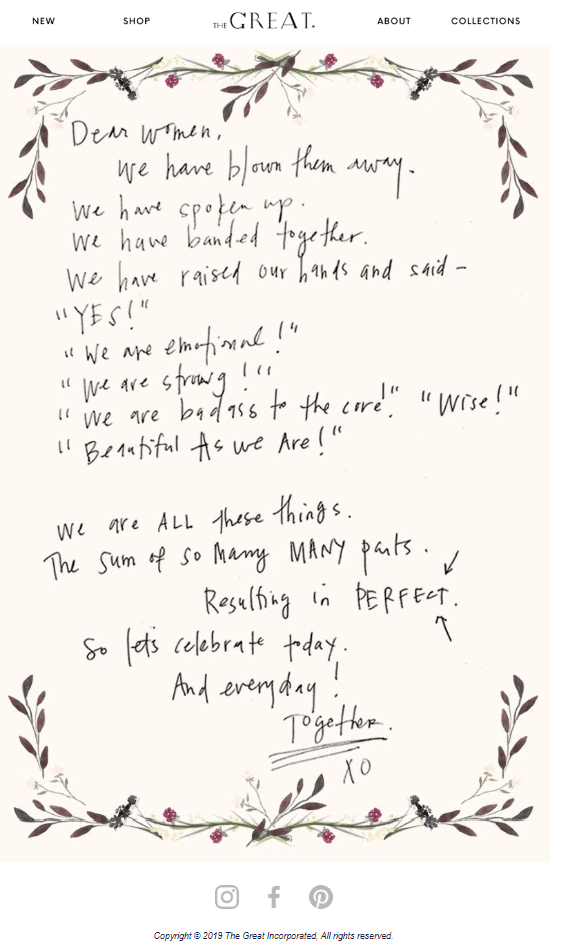 NEW SHOP THE GREAT. ABOUT COLLECTIONS
Dear women,
We have blown them away.
We have spoken up.
We have banded together.
We have raised our hands and said –
"YES!"
"We are emotional!"
"We are strong!"
"We are badass to the core!" "Wise!"
"Beautiful As we Are!"
We are ALL these things.
The sum of so Many MANY parts.
Resulting in PERFECT.
So let's celebrate today.
And everyday!
Together.
XO
Copyright © 2019 The Great Incorporated, All rights reserved.